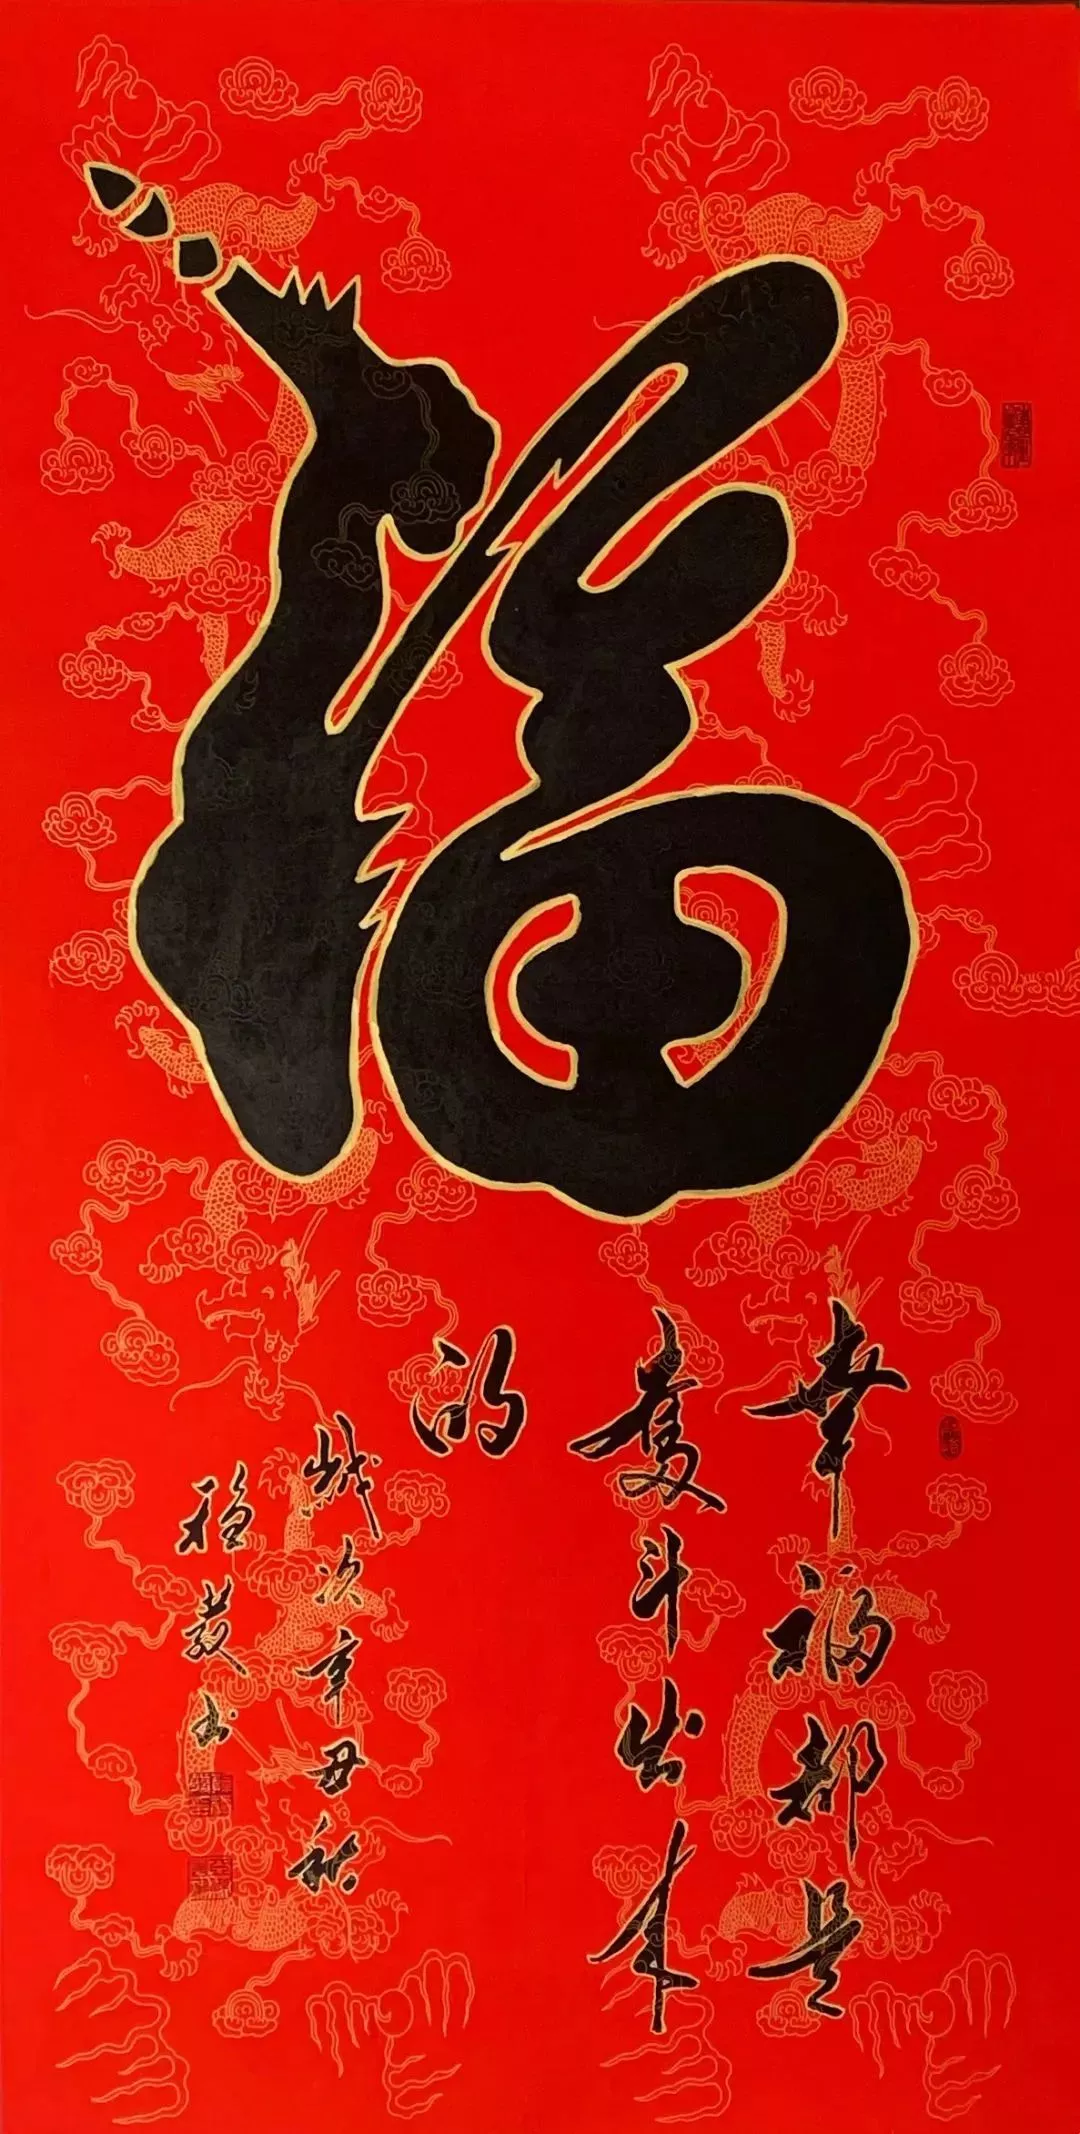 福
幸福都是
奋斗出来
的
岁次辛丑秋
穆毅书